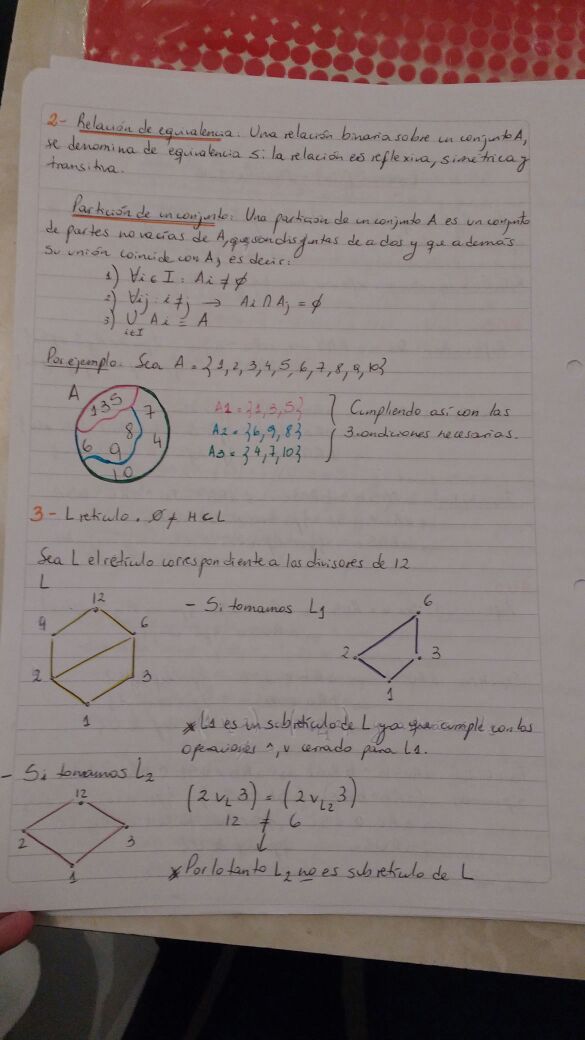 2- Relación de equivalencia: Una relación binaria sobre un conjunto A,
se denomina de equivalencia si la relación es reflexiva, simétrica y
transitiva.
Partición de un conjunto: Una partición de un conjunto A es un conjunto
de partes no vacías de A, que son disjuntas de a dos y que además
su unión coincide con A, es decir:
1) ∀i ∈ I : Ai ≠ ∅
2) ∀ij : i≠j → Ai ∩ Aj = ∅
3) ∪ Ai = A
i∈I
Por ejemplo: Sea A = {1, 2, 3, 4, 5, 6, 7, 8, 9, 10}
A
1 3 5
7
8
4
6
9
10
A1 = {1, 3, 5}
A2 = {6, 9, 8}
A3 = {4, 7, 10}
Cumpliendo así con las
3 condiciones necesarias.
3- L retículo. ∅ ≠ H ⊂ L
Sea L el retículo correspondiente a los divisores de 12
L
12
9
6
2
3
1
- Si tomamos L1
6
2
3
1
* L1 es un subretículo de L ya que cumple con las
operaciones ^, v cerrado para L1.
- Si tomamos L2
12
2
3
1
(2 vL 3) = (2 vL2 3)
12 ≠ 6
↓
* Por lo tanto L2 no es subretículo de L